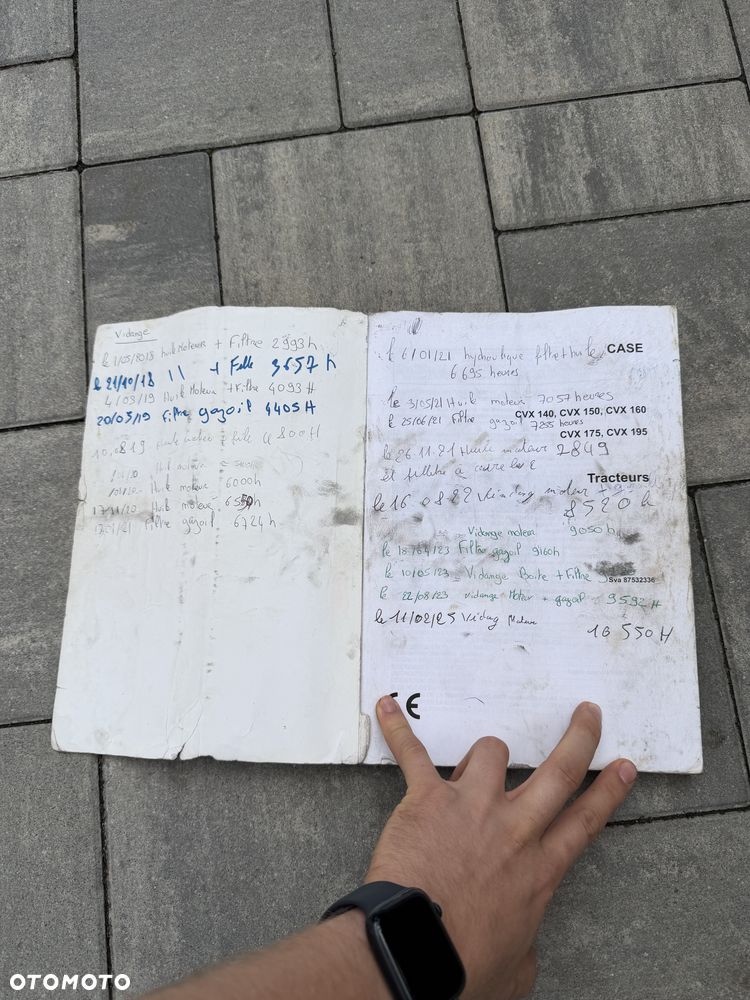 Vidange
le 1/05/2018 huile Moteur + Filtre 2993 h
le 21/10/18 11 + 3657 h
4/03/19 Huil Moteur + Filtre 4093 H
20/05/19 Filtre gazoil 4405 H
4800 H
Huil moteur
Huile moteur 6000 h
17/11/20 Huile moteur
Filtre gazoil 6724 h
le 6/01/21 hydroulique filtre + huile
CASE
6 695 heures
le 3/05/21 Huil moteur 7057 heures
le 25/06/21 Filtre gazoil 7255 heures
CVX 140, CVX 150, CVX 160
CVX 175, CVX 195
le 26.11.21 Huile moteur 2849
et
Tracteurs
le 16 08 22 Vidang moteur
8520 h
Vidange moteur 9050 h
le 18/04/23 Filtre gazoil 9160 h
le 10/05/23 Vidange Boite + Filtre
Sva 87532336
le 22/08/23 vidange Moteur + gazoil 9592 H
le 11/02/25 Vidang
10 550 H
CE
OTOMOTO